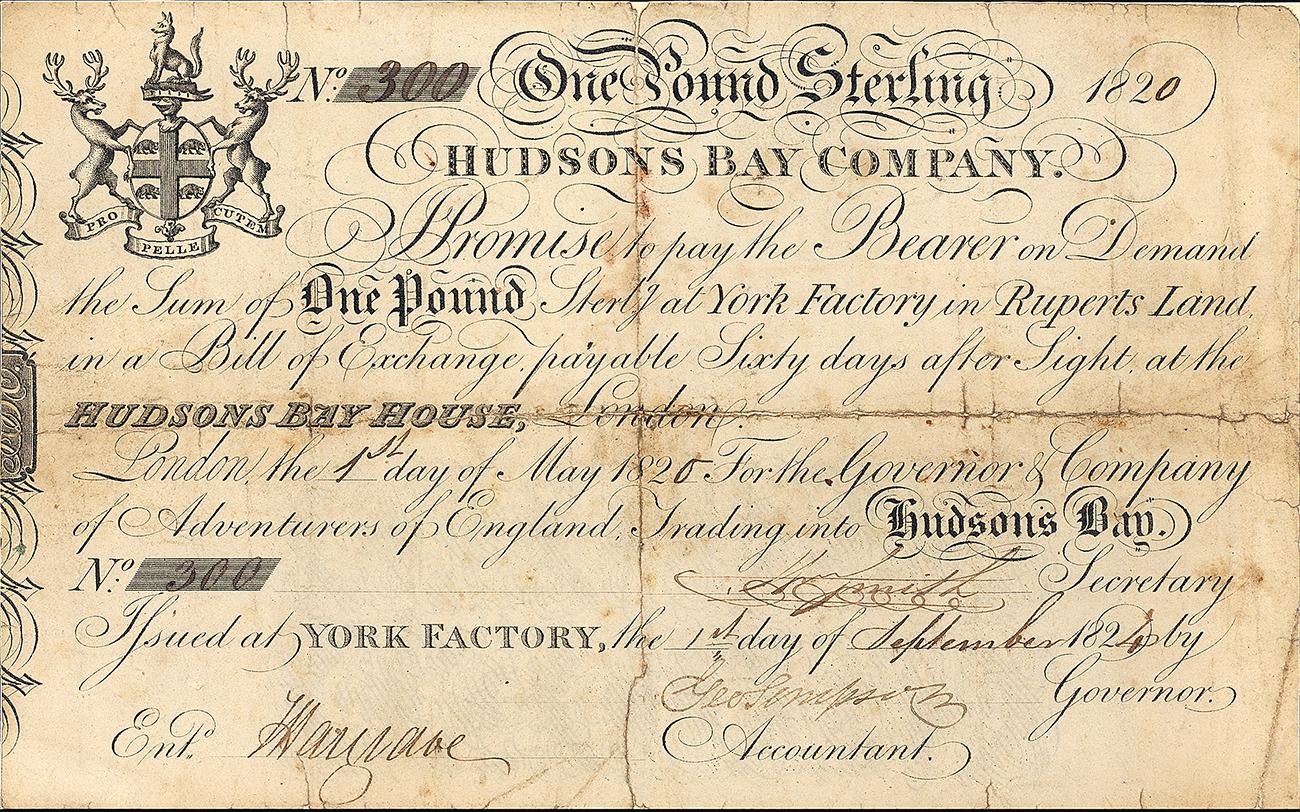 No. 300 One Pound Sterling 1820
HUDSONS BAY COMPANY.
PRO PELLE CUTEM
I Promise to pay the Bearer on Demand
the Sum of One Pound Sterlg at York Factory in Ruperts Land,
in a Bill of Exchange, payable Sixty days after Sight, at the
HUDSONS BAY HOUSE, London.
London, the 1st day of May 1820 For the Governor & Company
of Adventurers of England, Trading into Hudsons Bay.
No. 300 Smith Secretary
Issued at YORK FACTORY, the 1st day of September 1824 by
Geo Simpson Governor.
Entd. Hargrave Accountant.